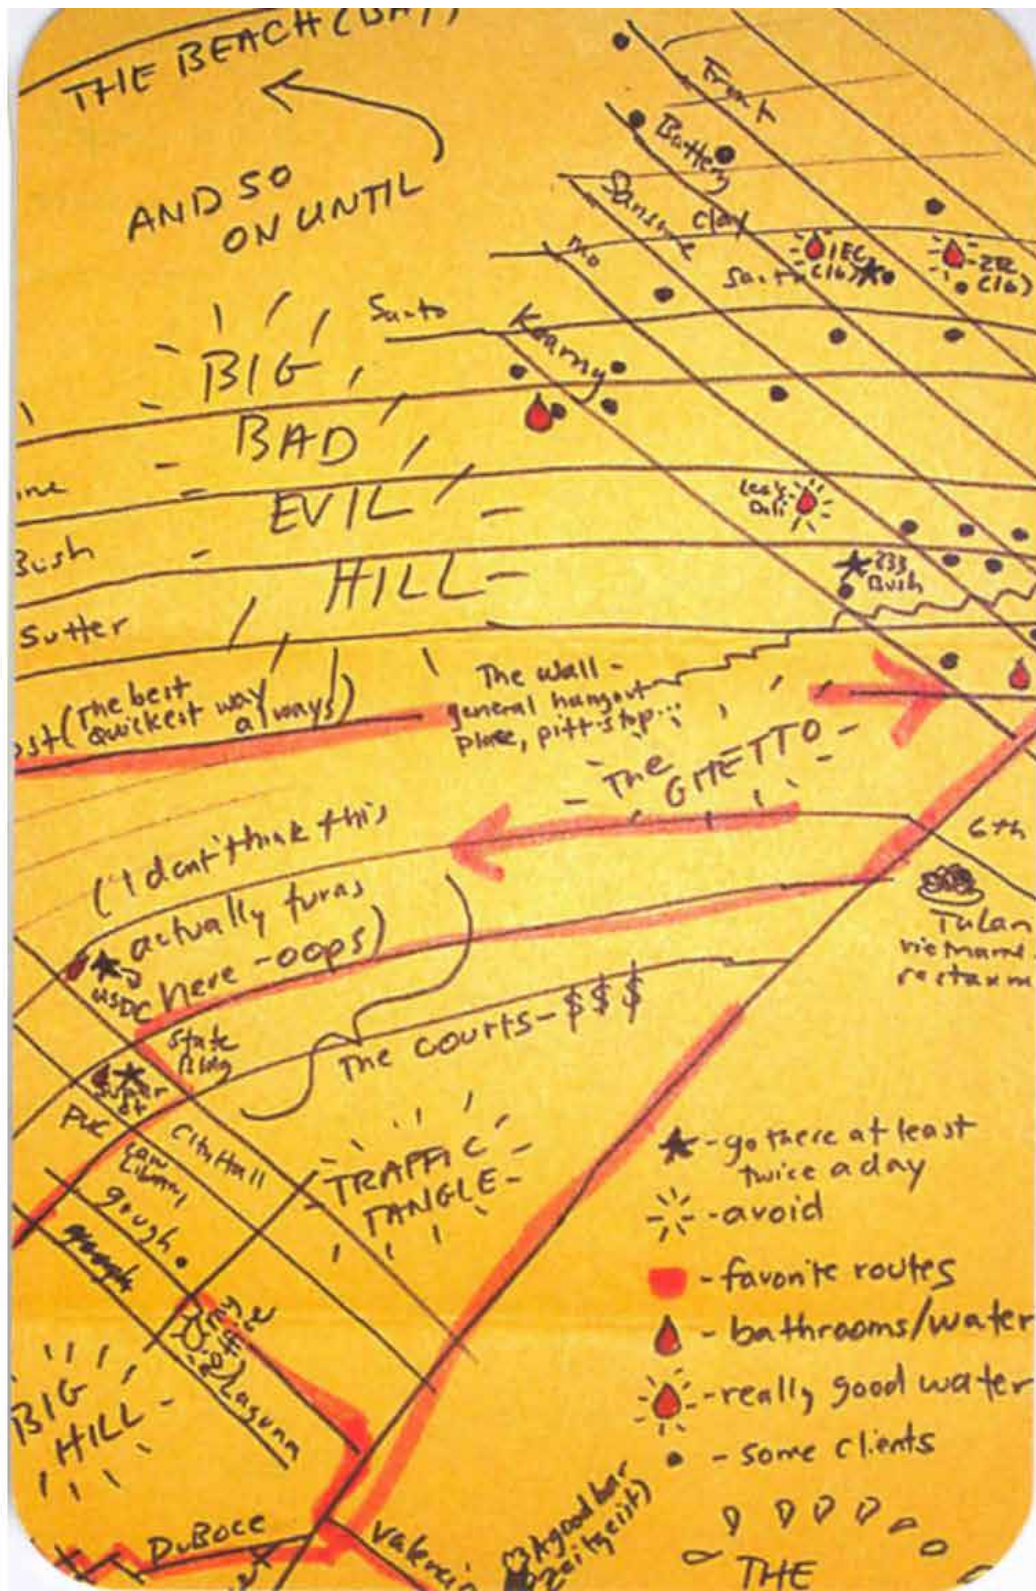 THE BEACH (BAY)
AND SO
ON UNTIL
Front
Battery
Sansome
Clay
Mo
Kearny
1EC
(16)
2EC
(16)
BIG
BAD
EVIL
HILL
Bush
Sutter
Lee's
Deli
233
Bush
(The best
quickest way
always)
The wall -
general hangout
place, pitt-stop...
The
GHETTO
6th
Tulan
restaur
("I don't think this
actually turns
here - oops)
USDC
State
Bldg
The courts - $$$
PUC
City Hall
Law
Library
gough
Laguna
TRAFFIC
TANGLE
BIG
HILL
DuBoce
Valencia
A good bar
zeitgeist)
- go there at least
twice a day
- avoid
- favorite routes
- bathrooms/water
- really good water
- some clients
THE